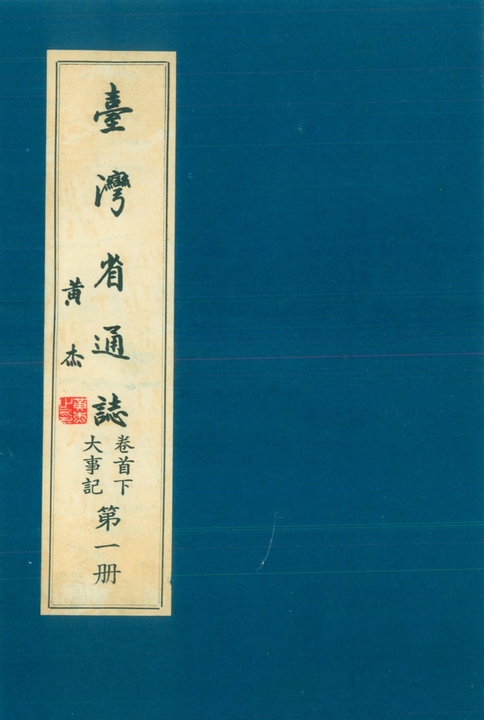 臺灣省通誌
黃杰
卷首下
大事記
第一册